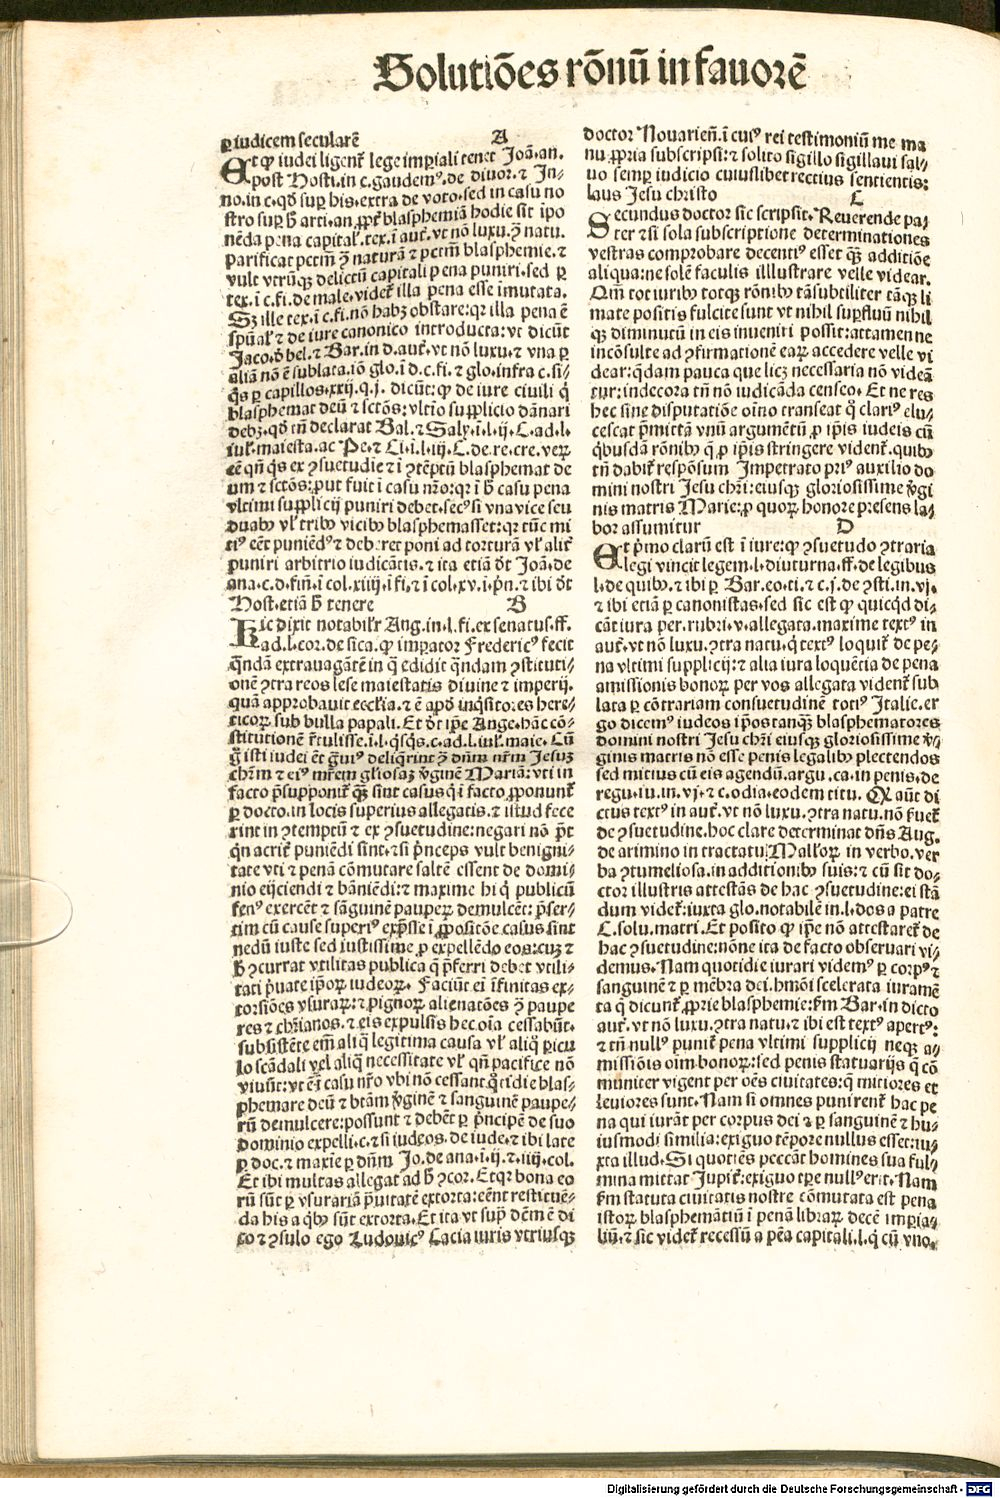 Solutiões rõnũ in fauorẽ
ꝑ iudicem secularẽ A
Et ꝙ iudei ligent᷑ lege imꝑiali tenet Joã.an.
post Hosti.in c.gaudemꝰ.de diuor.⁊ In-
no.in c.qð suꝑ his.extra de voto.sed in casu no
stro suꝑ h̄ arti.an ꝓpt᷑ blasphemiã hodie sit ipo
nẽda pena capital᷑.tex.ĩ aut᷑.vt nõ luxu.ꝯ natu.
parificat pctm̃ ꝯ naturã ⁊ pctm̃ blasphemie.⁊
vult vtrũqꝫ delictũ capitali pena puniri.sed ꝑ
tex.ĩ c.fi.de male.videt᷑ illa pena esse ĩmutata.
Sꝫ ille tex.ĩ c.fi.nõ habꝫ obstare:qꝛ illa pena ẽ
spũal᷑ ⁊ de iure canonico introducta:vt dicũt
Jaco.ð bel.⁊ Bar.in d.aut᷑.vt nõ luxu.⁊ vna ꝑ
aliã nõ ẽ sublata.iõ glo.ĩ d.c.fi.⁊ glo.infra c.si-
q̃s ꝑ capillos.xxij.q.j. dicũt:ꝙ de iure ciuili q̇
blasphemat deũ ⁊ sctõs:vltĩo supplicio dãnari
debꝫ.qð tñ declarat Bal.⁊ Saly.ĩ.l.ij.C.ad.l.
iul᷑.maiesta.ac Pe.⁊ Ci.ĩ.l.iij.C.de.re.cre. veꝝ
eẽ qñ q̇s ex ꝯsuetudie ⁊ ĩ ꝯtẽptũ blasphemat de
um ⁊ sctõs:ꝓut fuit ĩ casu nr̃o:qꝛ ĩ h̄ casu pena
vltimi supplicij puniri debet.secꝰ si vna vice seu
duabꝰ vl᷑ tribꝰ vicibꝰ blasphemasset:qꝛ tũc mi
tiꝰ eẽt puniẽdꝰ ⁊ deberet poni ad torturã vl᷑ alit᷑
puniri arbitrio iudicãtis.⁊ ita etiã ðt Joã.de
ana.c.d.fiñ.ĩ col.xiiij.ĩ fi.⁊ ĩ col.xv.ĩ pñ.⁊ ibi ðt
Host.etiã h̄ tenere B
Hic dixit notabil᷑r Ang.in.l.fi.ex senatus.ff.
ad.l.cor.de sica.ꝙ imꝑator Fredericꝰ fecit
q̃ndã extrauagãtẽ in q̃ edidit q̃ndam ꝯstituti-
onẽ ꝯtra reos lese maiestatis diuine ⁊ imperij.
quã approbauit eccľia.⁊ ẽ apð inq̇sitores here-
ticoꝝ sub bulla papali. Et ðt ip̃e Ange.hãc cõ-
stitutionẽ r̃tulisse.ĩ.l.q̇sq̇s.c.ad.l.iul᷑.maie. Cũ
g̊ isti iudei ẽt g̃uiꝰ deliq̃rint ꝯ dñm nr̃m Jesuꝫ
chr̃m ⁊ eiꝰ mr̃em gľiosaꝫ v̇ginẽ Mariã:vti in
facto p̃supponit᷑ qꝫ sint casus q̇ ĩ facto ꝓponunt᷑
ꝑ docto.in locis superius allegatis.⁊ illud fece
rint in ꝯtemptũ ⁊ ex ꝯsuetudine:negari nõ p̃t
q̇n acrit᷑ puniẽdi sint.⁊ si p̃nceps vult benigni-
tate vti ⁊ penã cõmutare saltẽ essent de domi-
nio eijciendi ⁊ bãniẽdi:⁊ maxime hi q̇ publicũ
fenꝰ exercẽt ⁊ sãguinẽ pauperꝝ demulcẽt: p̃ser-
tim cũ cause superiꝰ exp̃sse ĩ ꝓpositõe casus sint
nedũ iuste sed iustissime ꝓ expellẽdo eos:cuꝫ ⁊
h̄ ꝯcurrat vtilitas publica q̃ p̃ferri debet vtili-
tati p̃uate ip̃oꝝ iudeoꝝ. Faciũt ei ĩfinitas ex-
torsiões vsuraꝝ:⁊ pignoꝝ alienatões ꝯ paupe
res ⁊ chr̃ianos.⁊ eis expulsis hec.oĩa cessabũt.
subsistẽte em̃ aliq̃ legitima causa vl᷑ aliq̊ ꝑicu
lo scãdali vel aliq̃ necessitate vl᷑ qñ pacifice nõ
viuũt:vt eĩ casu nr̃o vbi nõ cessant q̊tidie blas-
phemare deũ ⁊ btãm v̇ginẽ ⁊ sanguinẽ paupe-
rũ demulcere:possunt ⁊ debẽt ꝑ p̃ncipẽ de suo
dominio expelli.c.⁊ si iudeos.de iude.⁊ ibi late
ꝑ doc.⁊ maxie ꝑ dñm Jo.de ana.ĩ.ij.⁊.iiij.col.
Et ibi multas allegat ad h̄ ꝯcor.Etqꝛ bona eo
rũ sũt ꝑ vsurariã p̃uitatẽ extorta:eẽnt restituẽ-
da his a q̇bꝰ sũt extorta.Et ita vt sup̃ dc̃m ẽ di
co ⁊ ꝯsulo ego Ludouicꝰ Cacia iuris vtriusqꝫ
doctor Nouarieñ.ĩ cuiꝰ rei testimoniũ me ma
nu ꝓpria subscripsi:⁊ solito sigillo sigillaui sal-
uo semꝑ iudicio cuiuslibet rectius sentientis:
laus Jesu christo C
Secundus doctor sic scripsit. Reuerende pa-
ter ⁊ si sola subscriptione determinationes
vestras comprobare decentiꝰ esset qꝫ additiõe
aliqua:ne solẽ faculis illustrare velle videar.
Qm̃ tot iuribꝰ totqꝫ rõnibꝰ tã subtiliter tãqꝫ li
mate positis fulcite sunt vt nihil suꝑfluũ nihil
qꝫ diminutũ in eis inueniri possit:attamen ne
incõsulte ad ꝯfirmationẽ eaꝝ accedere velle vi
dear:q̃dam pauca que licꝫ necessaria nõ videã
tur:indecora tñ nõ iudicãda censeo. Et ne res
hec sine disputatiõe oĩno transeat q̊ clariꝰ elu-
cescat p̃mittã vnũ argumẽtũ ꝓ ip̃is iudeis cũ
q̇busdã rõnibꝰ q̃ ꝓ ip̃is stringere vident᷑.quibꝰ
tñ dabit᷑ respõsum Impetrato priꝰ auxilio do
mini nostri Jesu chr̃i:eiusqꝫ gloriosissime v̇gi
nis matris Marie:ꝓ quoꝝ honore presens la-
bor assumitur D
Et p̃mo clarũ est ĩ iure:ꝙ ꝯsuetudo ꝯtraria
legi vincit legem.l.diuturna.ff.de legibus
l.de quibꝰ.⁊ ibi ꝑ Bar.eo.ti.⁊ c.j.de ꝯsti.in.vj.
⁊ ibi etiã ꝑ canonistas.sed sic est ꝙ quicq̇d di-
cãt iura per.rubri.v.allegata.maxime textꝰ in
aut᷑.vt nõ luxu.ꝯtra natu.q̇ textꝰ loquit᷑ de pe-
na vltimi supplicij:⁊ alia iura loquẽtia de pena
amissionis bonoꝝ per vos allegata vident᷑ sub
lata ꝑ cõtrariam consuetudinẽ totiꝰ Italie.er
go dicemꝰ iudeos ip̃os tanqꝫ blasphematores
domini nostri Jesu chr̃i eiusqꝫ gloriosissime v̇-
ginis matris nõ esse penis legalibꝰ plectendos
sed mitius cũ eis agendũ.argu.ca.in penis.de
regu.iu.in.vj.⁊ c.odia.eodem titu. Ꝙ aũt di
ctus textꝰ in aut᷑.vt nõ luxu.ꝯtra natu.nõ s̃uet᷑
de ꝯsuetudine.hoc clare determinat dñs Aug.
de arimino in tractatu Malľoꝝ in verbo.ver
ba ꝯtumeliosa.in additionibꝰ suis:⁊ cũ sit do-
ctor illustris attestãs de hac ꝯsuetudine:ei stã
dum videt᷑:iuxta glo.notabilẽ in.l.dos a patre
C.solu.matri. Et posito ꝙ ip̃e nõ attestaret᷑ de
hac ꝯsuetudine:nõne ita de facto obseruari vi-
demus.Nam quotidie iurari videmꝰ ꝑ corpꝰ ⁊
sanguinẽ ⁊ ꝑ mẽbra dei.hmõi scelerata iuramẽ
ta q̃ dicunt᷑ ꝓprie blasphemie:ẜm Bar.in dicto
aut᷑.vt nõ luxu.ꝯtra natu.⁊ ibi est textꝰ apertꝰ:
⁊ tñ nullꝰ punit᷑ pena vltimi supplicij neqꝫ a-
missiõis oĩm bonoꝝ:sed penis statuarijs q̃ cõ
muniter vigent per oẽs ciuitates:q̃ mitiores et
leuiores sunt.Nam si omnes punirent᷑ hac pe
na qui iurãt per corpus dei ⁊ ꝑ sanguinẽ ⁊ hu-
iusmodi similia:exiguo tẽpore nullus esset:iu-
xta illud. Si quotiẽs peccãt homines sua ful-
mina mittat Jupit᷑:exiguo tꝑe nullꝰ erit.Nam
ẜm statuta ciuitatis nostre cõmutata est pena
istoꝝ blasphemãtiũ ĩ penã libraꝝ decẽ imꝑia-
liũ.⁊ sic videt᷑ recessũ a pẽa capitali.l.q̇ cũ vno.
Digitalisierung gefördert durch die Deutsche Forschungsgemeinschaft - DFG